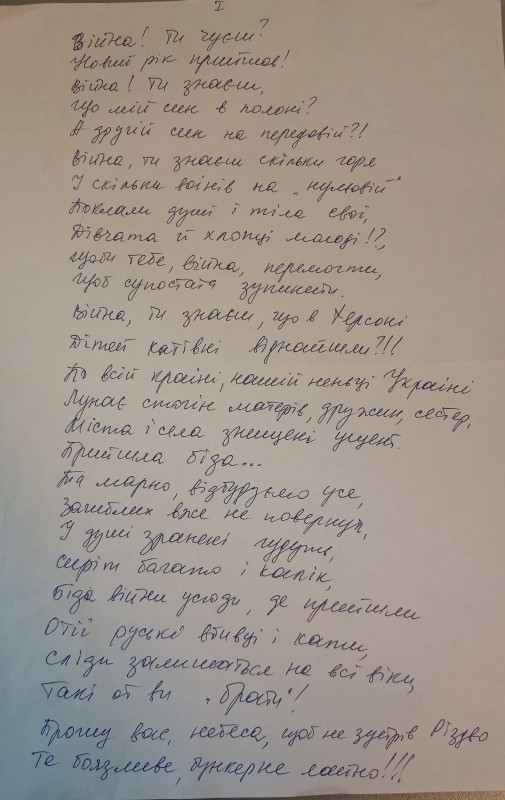 I
Війна! Ти чуєш?
Новий рік прийшов!
Війна! Ти знаєш,
Що мій син в полоні?
А другий син на передовій?!
Війна, ти знаєш скільки горя
І скільки воїнів на „нульовій“
Поклали душі і тіла свої,
Дівчата й хлопці молоді!?,
Щоби тебе, війна, перемогти,
Щоб супостата зупинити.
Війна, ти знаєш, що в Херсоні
Дітей катівні віднайшли?!!
По всій країні, нашій неньці Україні
Лунає стогін матерів, дружин, сестер,
Міста і села знищені ущент.
Прийшла біда...
Та марно, відбудуємо усе,
Загиблих вже не повернуть,
І душі зранені гудуть,
Сиріт багато і калік,
Біда війни усюди, де прийшли
Отії руські вбивці і кати,
Сліди залишаться на всі віки,
Такі от ви „брати“!
Прошу вас, небеса, щоб не зустрів Різдво
Те боязливе, бункерне лайно!!!